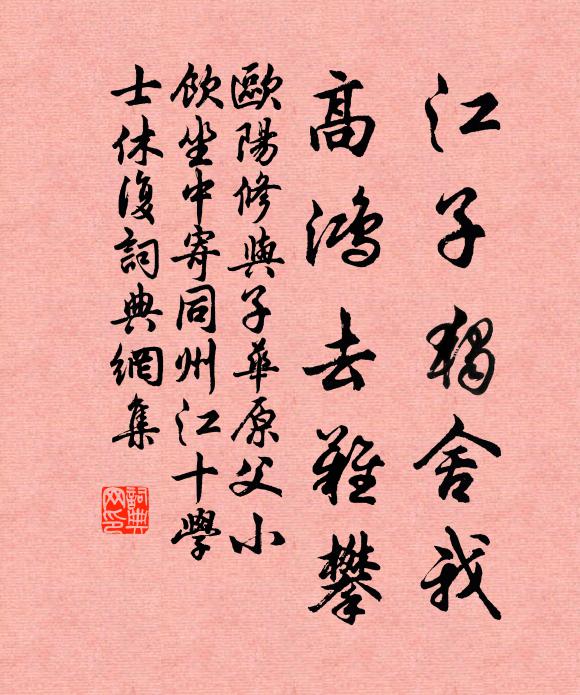 江子獨舍我
高鴻去難攀
歐陽修與子華原父小
飲坐中寄同州江十學
士休復詞典網集
詞典網印